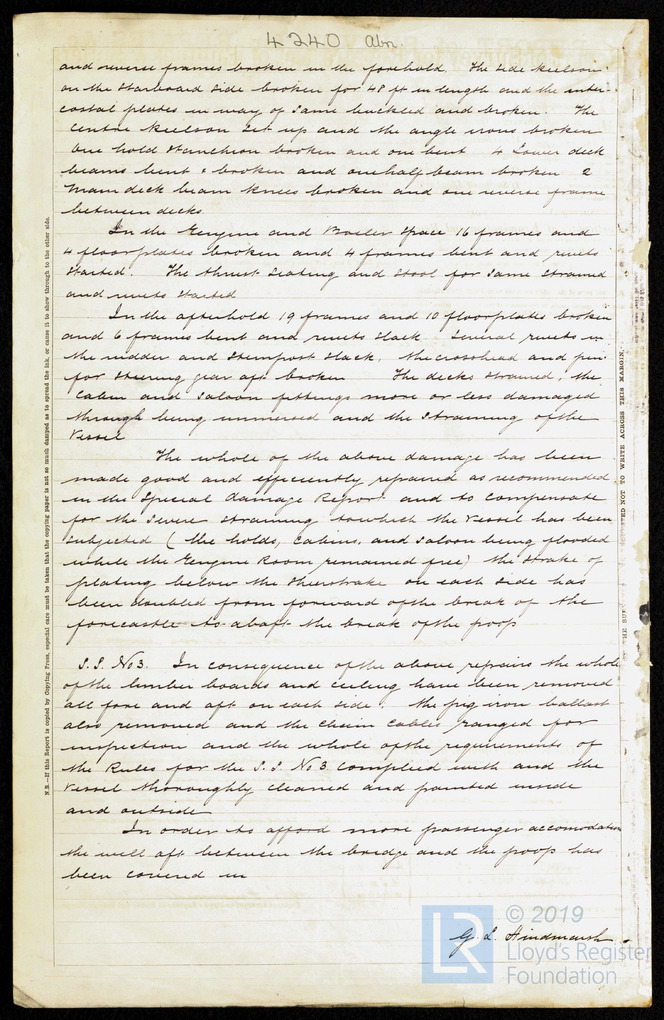 4240 Abn.
and reverse frames broken in the forehold. The side keelson
on the starboard side broken for 48 ft in length and the inter-
costal plates in way of same buckled and broken. The
centre keelson set up and the angle irons broken
one hold stanchion broken and one bent 4 lower deck
beams bent & broken and one half beam broken 2
main deck beam knees broken and one reverse frame
between decks
In the Engine and Boiler space 16 frames and
4 floorplates broken and 4 frames bent and rivets
started. The thrust seating and stool for same strained
and rivets started
In the afterhold 19 frames and 10 floorplates broken
and 6 frames bent and rivets slack Several rivets in
the rudder and sternpost slack, the crosshead and pin
for steering gear aft broken The decks strained, the
cabin and saloon fittings more or less damaged
through being immersed and the straining of the
vessel
The whole of the above damage has been
made good and efficiently repaired as recommended
in the Special Damage Report and to compensate
for the severe straining to which the vessel has been
subjected (the holds, cabins, and saloon being flooded
while the Engine Room remained free) the strake of
plating below the sheerstrake on each side has
been doubled from forward of the break of the
forecastle to abaft the break of the poop
S.S. No 3. In consequence of the above repairs the whole
of the limber boards and ceiling have been removed
all fore and aft on each side, the pig iron ballast
also removed and the chain cables ranged for
inspection and the whole of the requirements of
the Rules for the S.S. No 3 complied with and the
vessel thoroughly cleaned and painted inside
and outside
In order to afford more passenger accomodation
the well aft between the bridge and the poop has
been covered in
G. L. Hindmarsh
N.B.—If this Report is copied by Copying Press, especial care must be taken that the copying paper is not so much damped as to spread the ink, or cause it to show through to the other side.
NOT TO WRITE ACROSS THIS MARGIN.
LR
© 2019
Lloyd's Register
Foundation